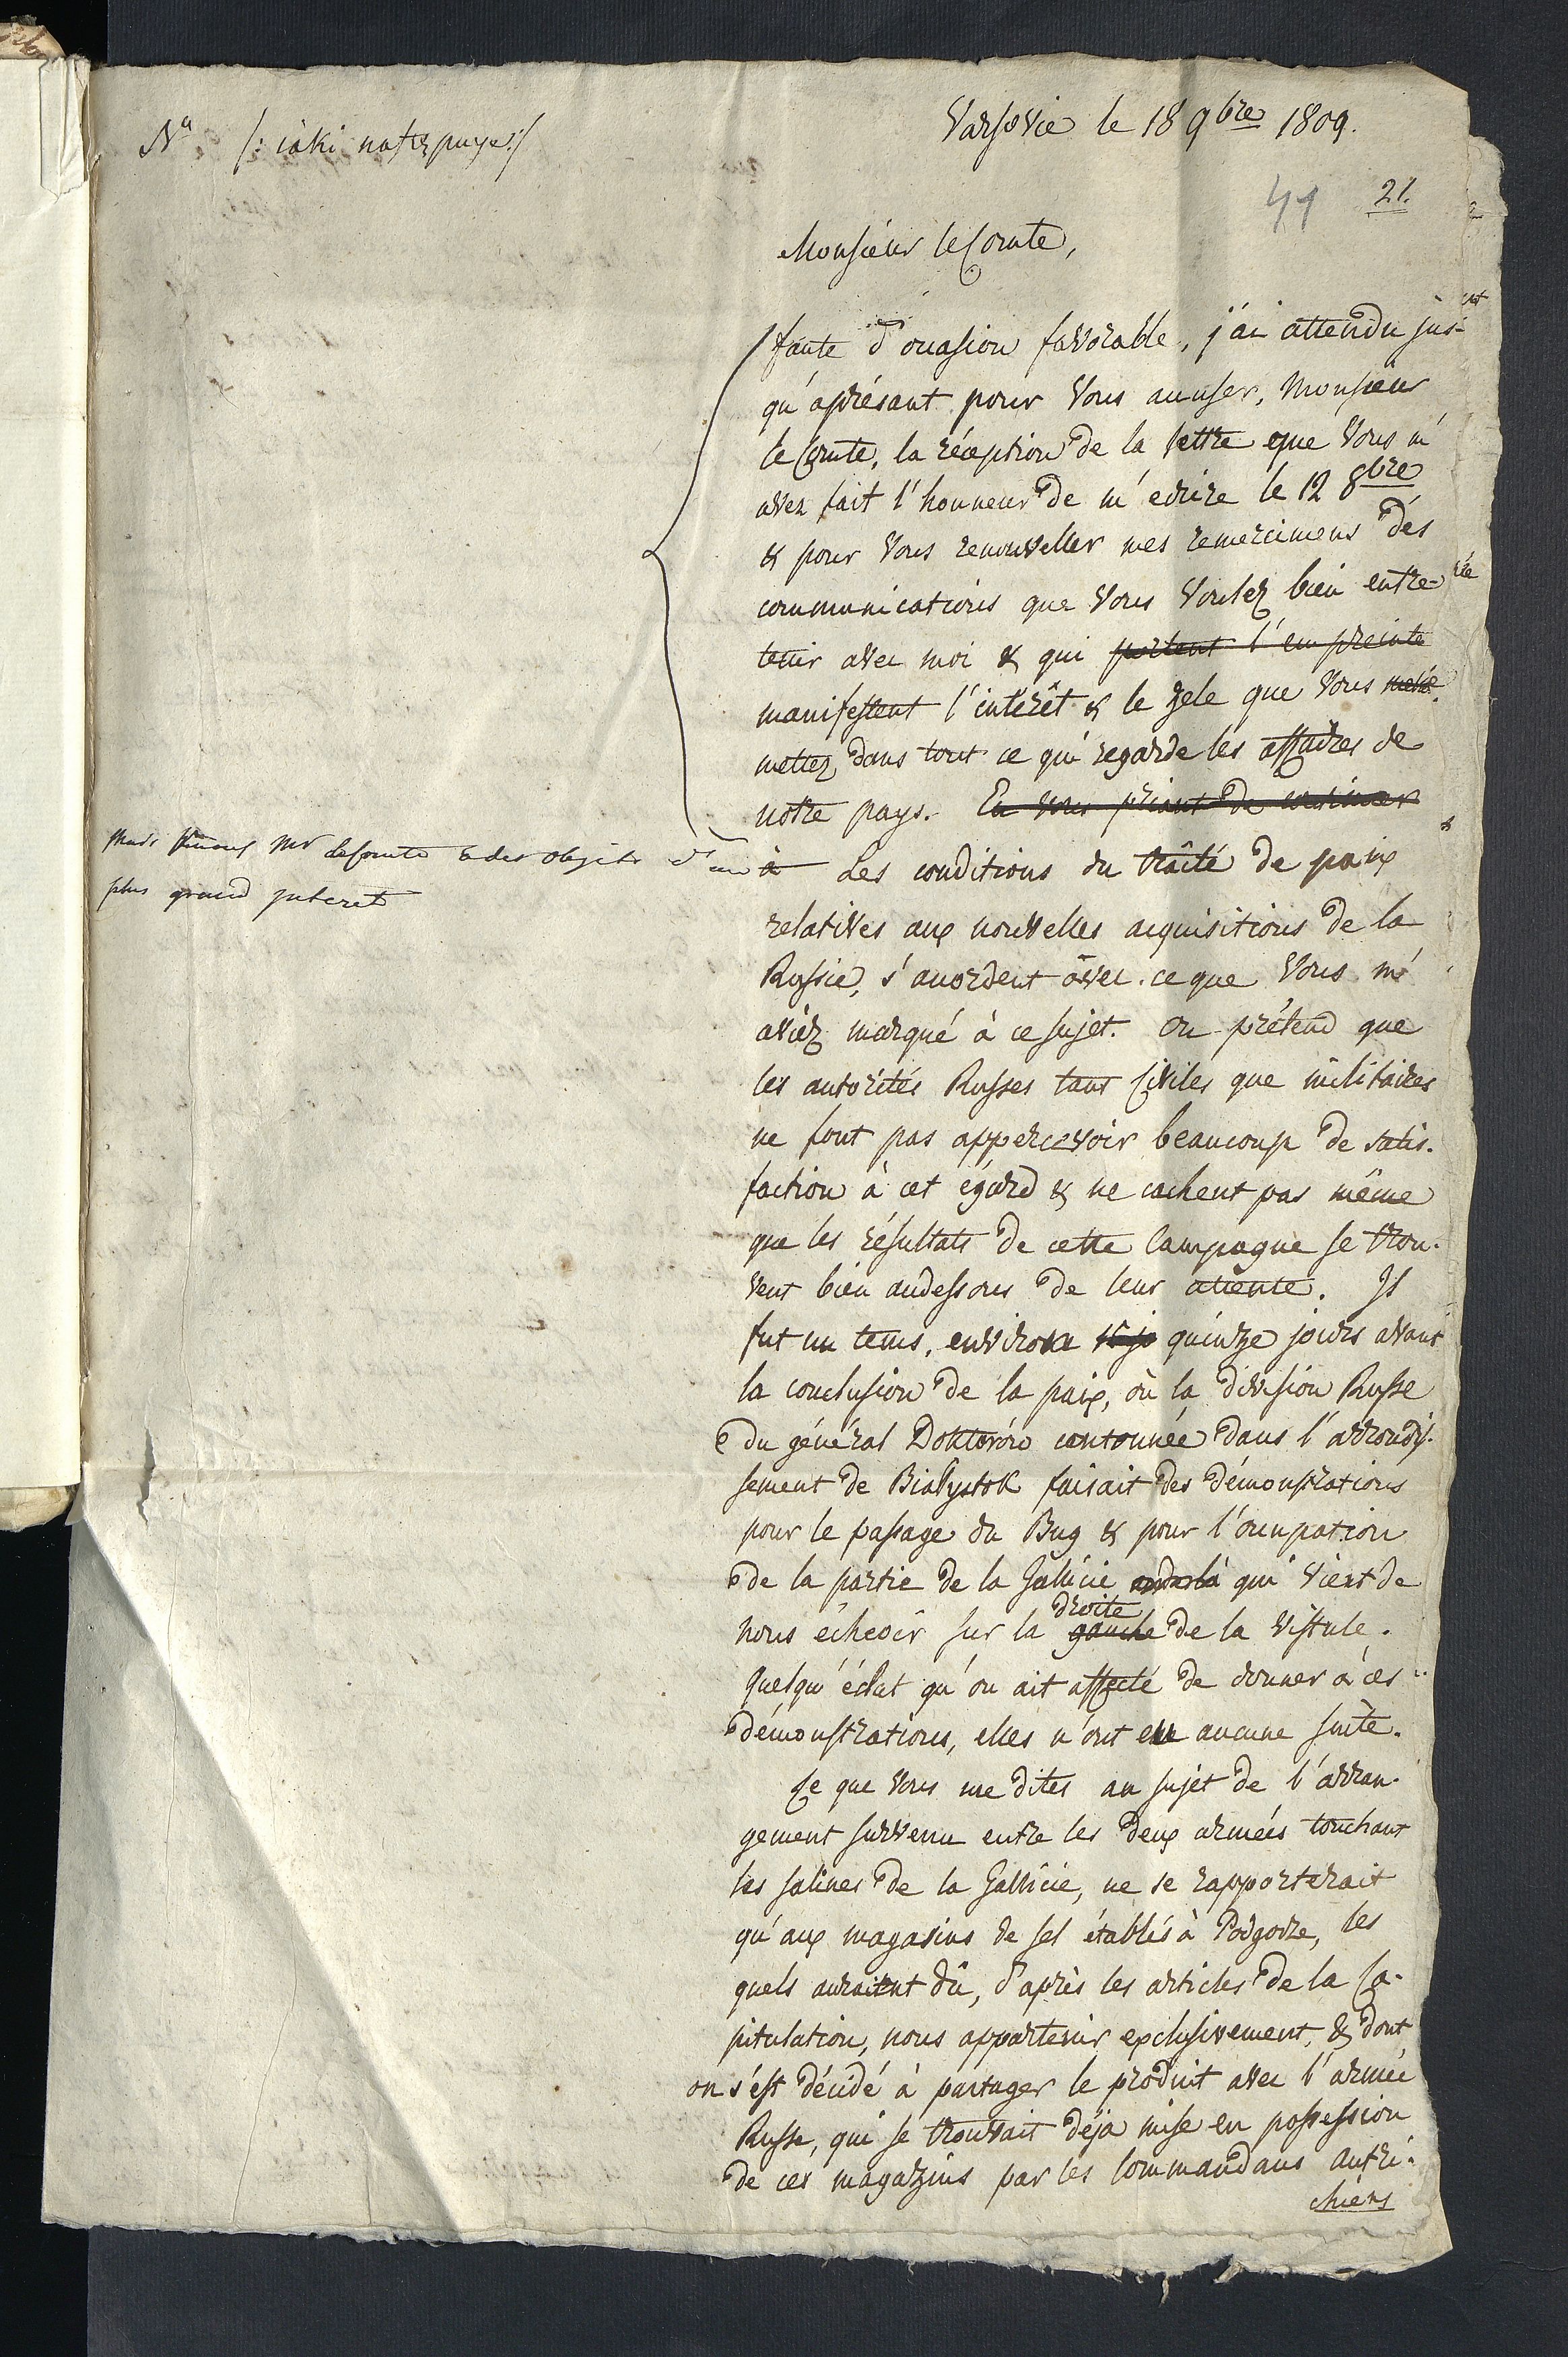 Varsovie le 18 9bre 1809.
Na /: iaki następuje :/
41 21.
Monsieur le Comte,
faute d'occasion favorable, j'ai attendu jus-
qu'aprésant pour Vous accuser, Monsieur
le Comte, la réception de la lettre que Vous m'
avez fait l'honneur de m'ecrire le 12 8bre
& pour Vous renouveller mes remercimens dés
communications que Vous Voulez bien entre-
tenir avec moi & qui portent l'empreinte
manifestent l'intérêt & le zele que Vous
mettez dans tout ce qui regarde les affaires de
notre pays. En vous priant de continuer
Mr le Comte à des objets d'un
plus grand interet
à Les conditions du traité de paix
relatives aux nouvelles acquisitions de la
Russie, s'accordent avec ce que Vous m'
aviez marqué à ce sujet. On prétend que
les autorités Russes tant Civiles que militaires
ne font pas appercevoir beaucoup de satis-
faction à cet égard & ne cachent pas même
que les résultats de cette Campagne se trou-
vent bien audessous de leur attente. Il
fut un tems, environ 15 jo quinze jours avant
la conclusion de la paix, où la division Russe
du général Doktorów cantonnée dans l'arrondis-
sement de Białystok faisait des démonstrations
pour le passage du Bug & pour l'occupation
de la partie de la Gallicie qui vient de
nous écheoir sur la gauche droite de la Vistule.
Quelqu'éclat qu'on ait affecté de donner à ces
démonstrations, elles n'ont eue aucune suite.
Ce que Vous me dites au sujet de l'arran-
gement survenu entre les deux armées touchant
les salines de la Gallicie, ne se rapporterait
qu'aux magasins de sel établis à Podgorze, les
quels auraient dû, d'après les articles de la Ca-
pitulation, nous appartenir exclusivement, & dont
on s'est décidé à partager le produit avec l'armée
Russe, qui se trouvait déja mise en possession
de ces magazins par les Commandans autri-
chiens